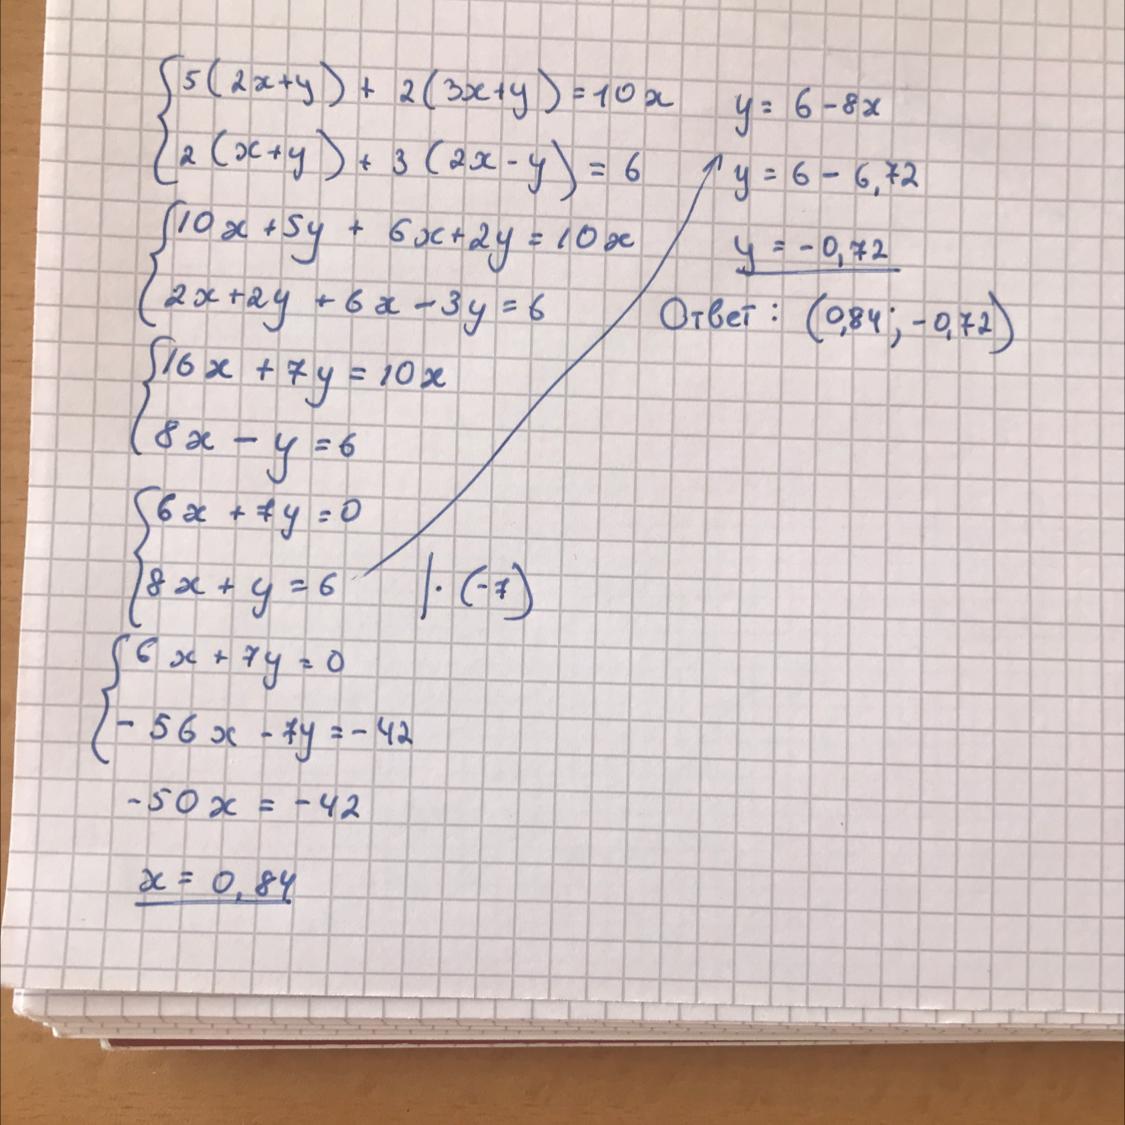 5(2x+y) + 2(3x+y) = 10x
2(x+y) + 3(2x-y) = 6
10x+5y + 6x+2y = 10x
2x+2y + 6x-3y = 6
16x + 7y = 10x
8x - y = 6
6x + 7y = 0
8x + y = 6 |·(-7)
6x + 7y = 0
-56x - 7y = -42
-50x = -42
x = 0,84
y = 6-8x
y = 6 - 6,72
y = -0,72
Ответ: (0,84; -0,72)